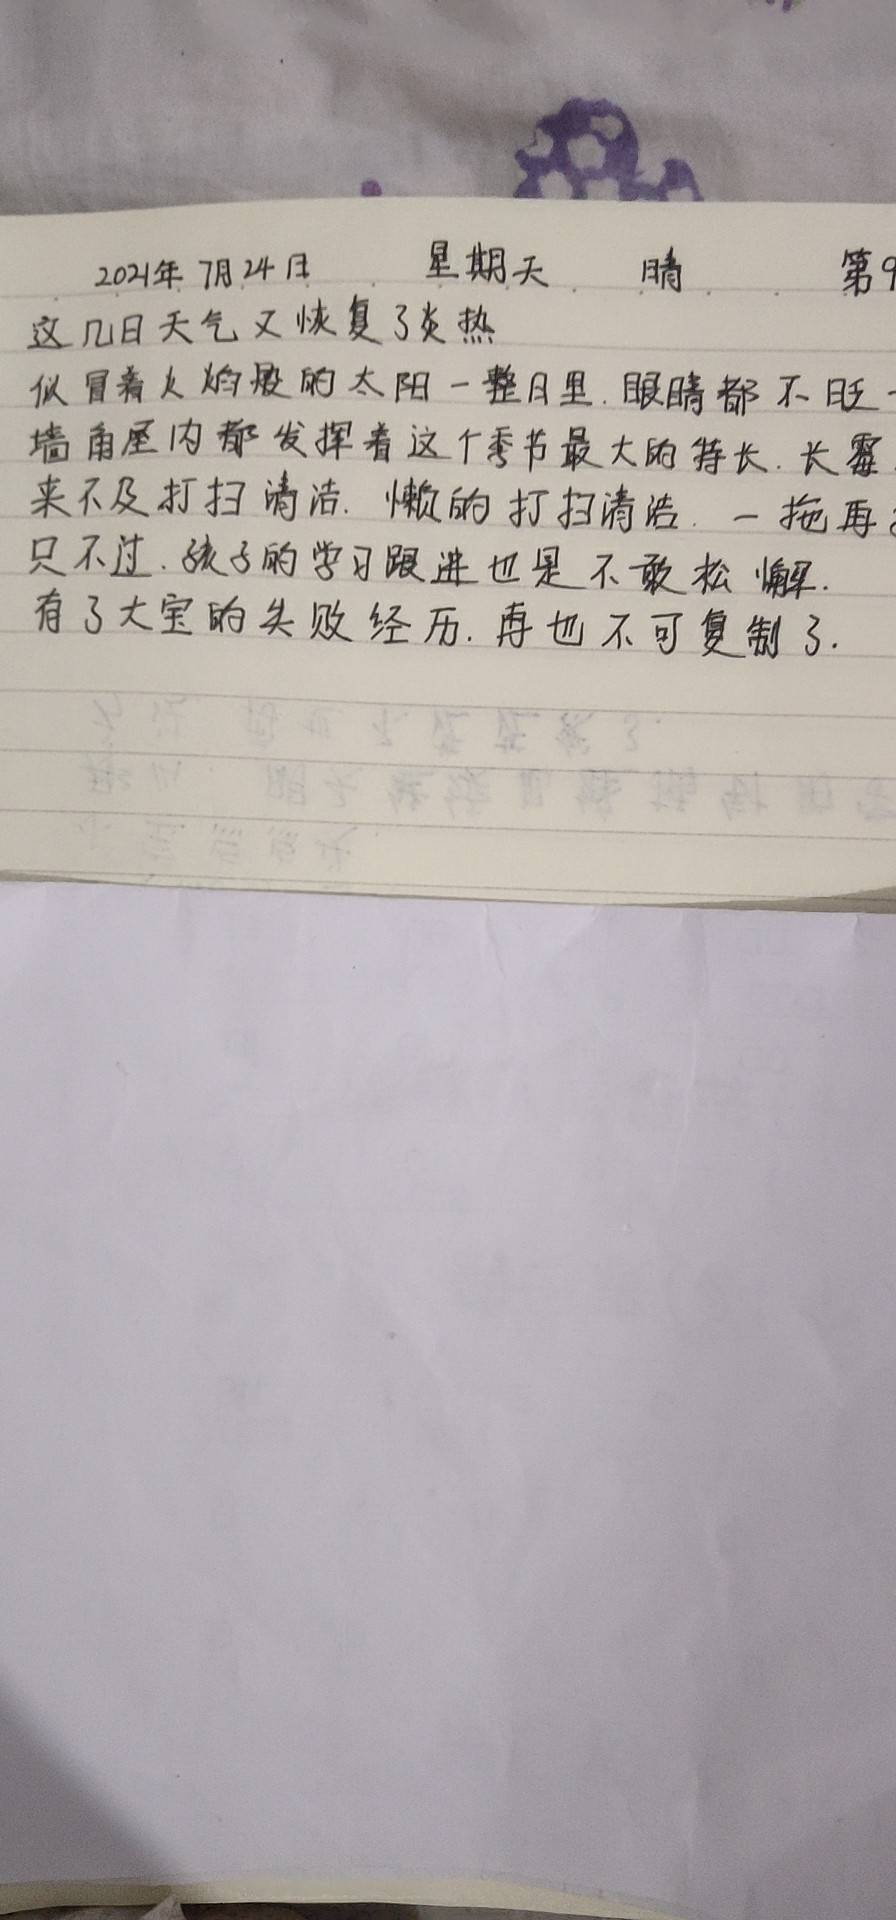 2021年7月24日 星期天 晴 第9
这几日天气又恢复了炎热
似冒着火焰般的太阳一整日里.眼睛都不眨一
墙角屋内都发挥着这个季节最大的特长.长霉.
来不及打扫清洁.懒的打扫清洁.一拖再
只不过.孩子的学习跟进也是不敢松懈.
有了大宝的失败经历.再也不可复制了.